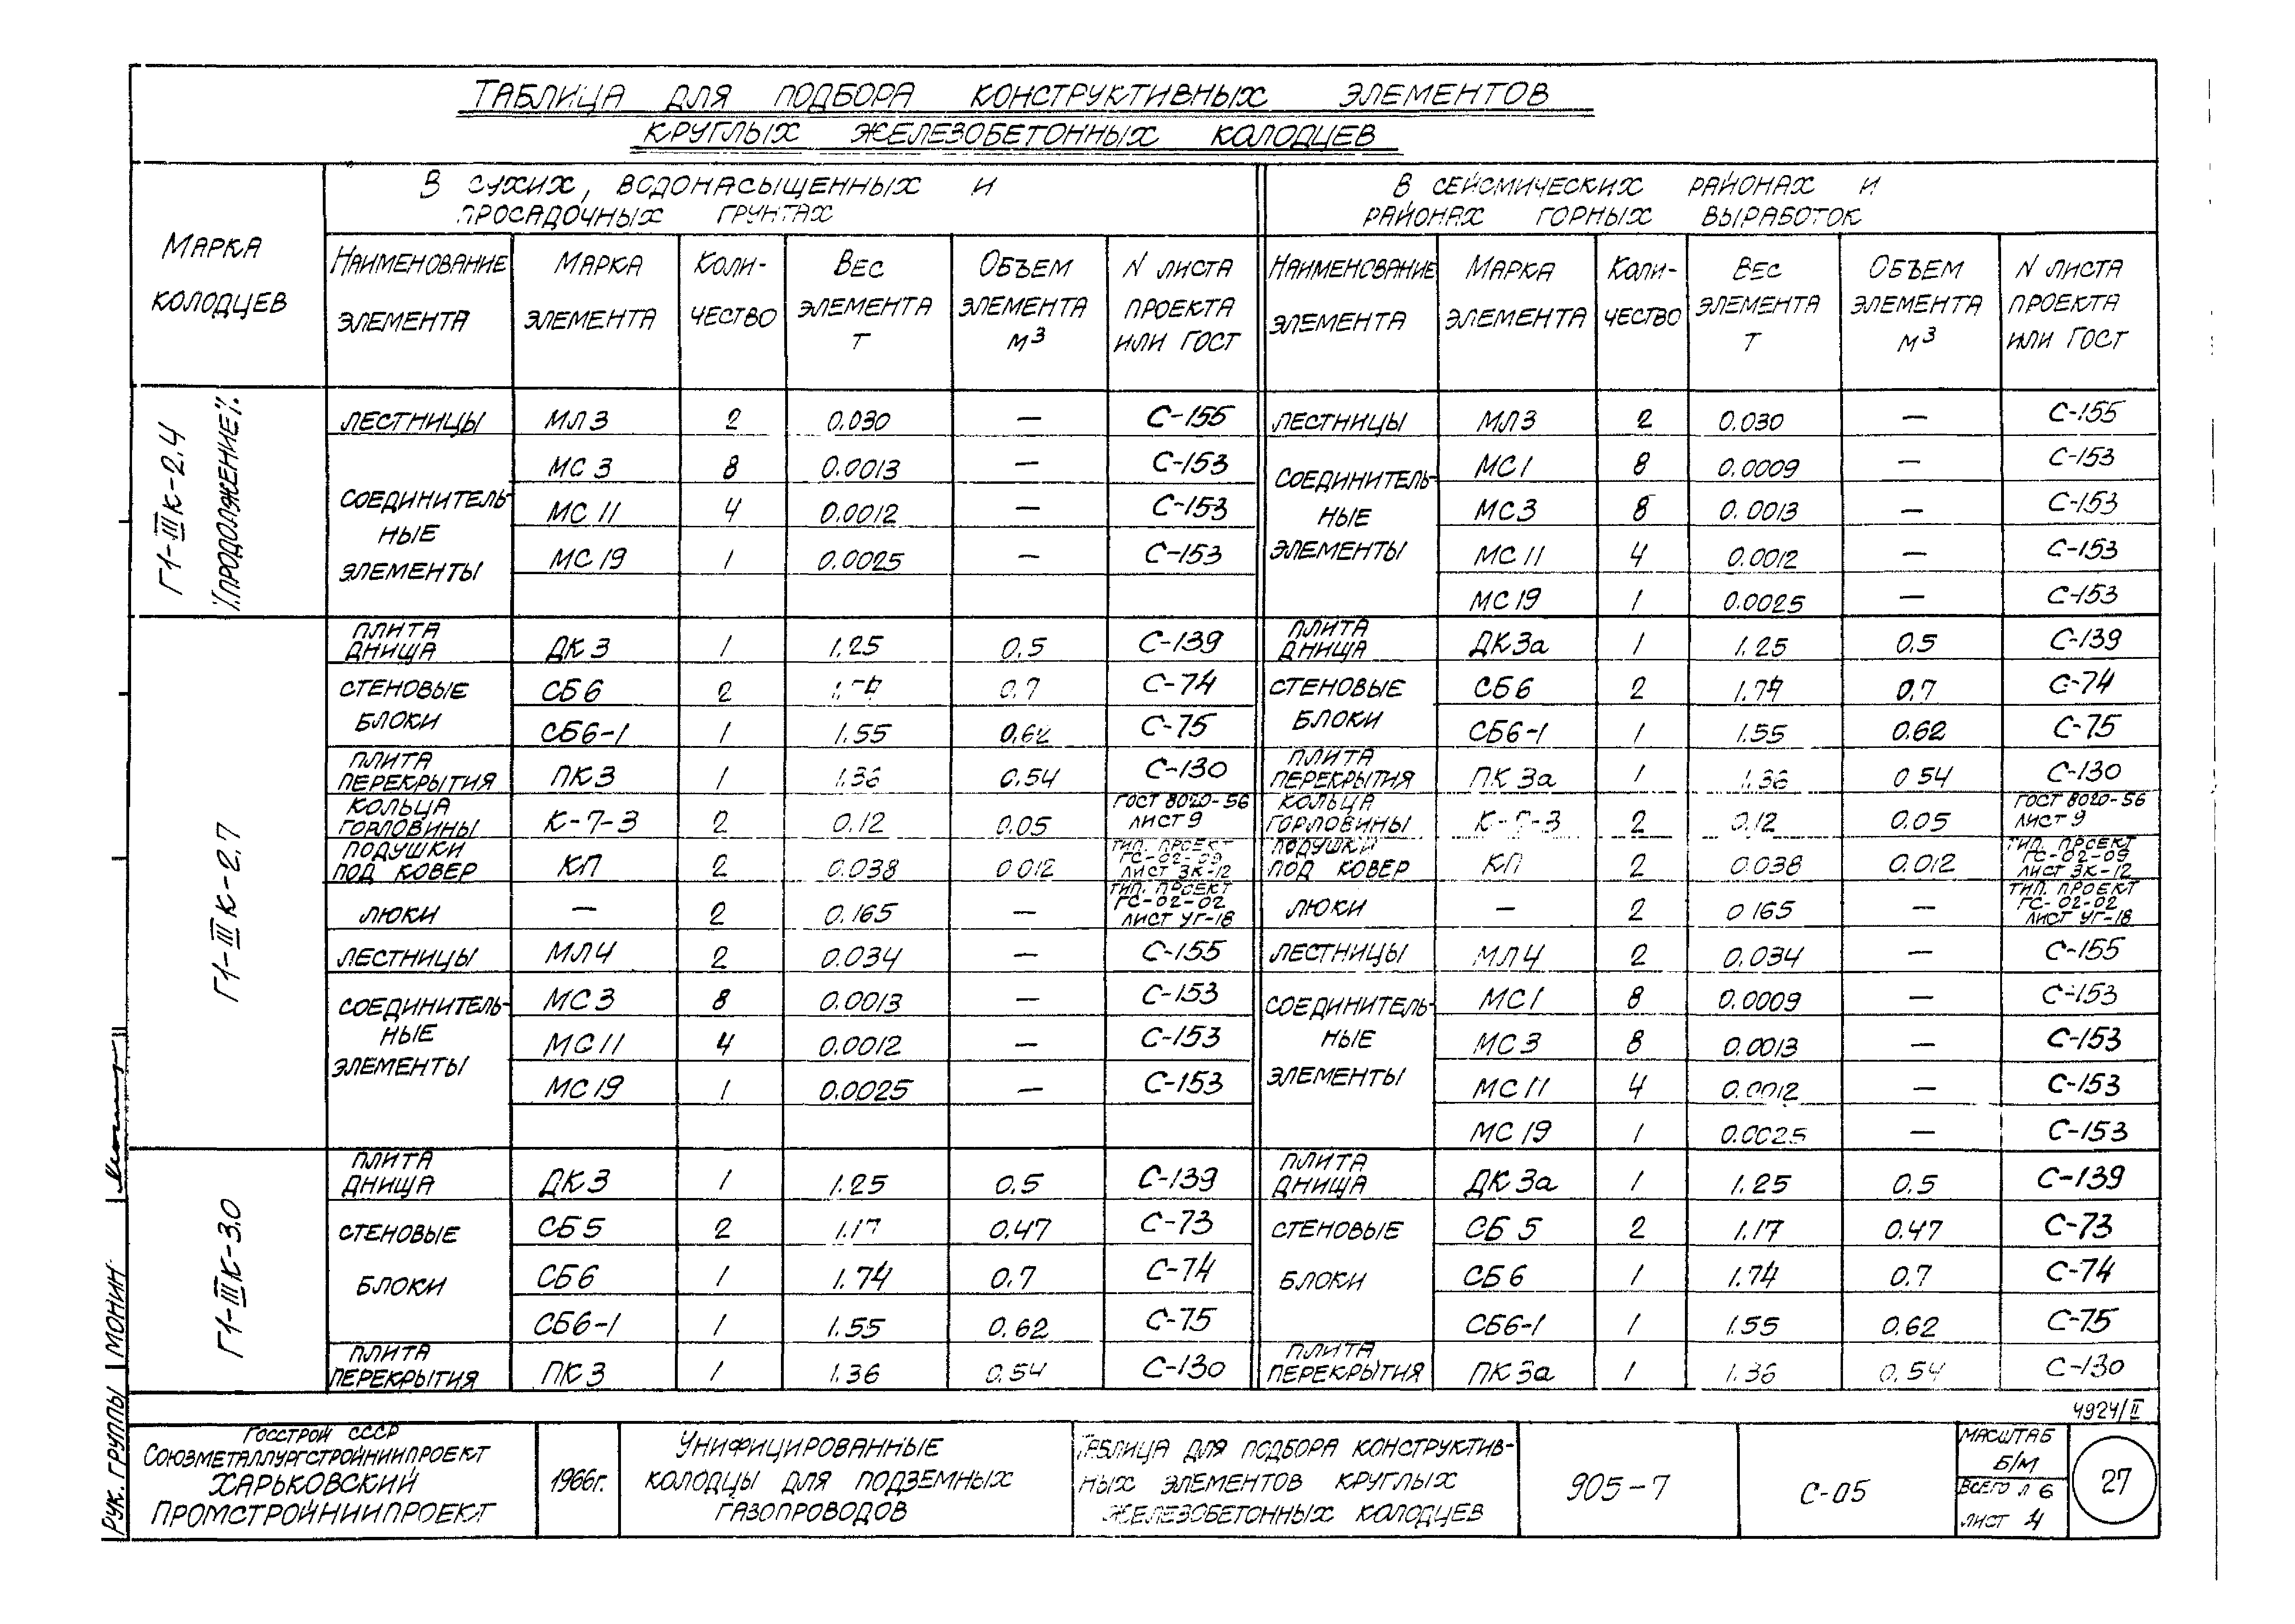 ТАБЛИЦА ДЛЯ ПОДБОРА КОНСТРУКТИВНЫХ ЭЛЕМЕНТОВ
КРУГЛЫХ ЖЕЛЕЗОБЕТОННЫХ КОЛОДЦЕВ
МАРКА КОЛОДЦЕВ
В СУХИХ, ВОДОНАСЫЩЕННЫХ И
ПРОСАДОЧНЫХ ГРУНТАХ
В СЕЙСМИЧЕСКИХ РАЙОНАХ И
РАЙОНАХ ГОРНЫХ ВЫРАБОТОК
НАИМЕНОВАНИЕ ЭЛЕМЕНТА МАРКА ЭЛЕМЕНТА КОЛИ-ЧЕСТВО ВЕС ЭЛЕМЕНТА Т ОБЪЕМ ЭЛЕМЕНТА М³ N ЛИСТА ПРОЕКТА ИЛИ ГОСТ НАИМЕНОВАНИЕ ЭЛЕМЕНТА МАРКА ЭЛЕМЕНТА КОЛИ-ЧЕСТВО ВЕС ЭЛЕМЕНТА Т ОБЪЕМ ЭЛЕМЕНТА М³ N ЛИСТА ПРОЕКТА ИЛИ ГОСТ
Г1-IIIК-2,4 /ПРОДОЛЖЕНИЕ/.
ЛЕСТНИЦЫ МЛ3 2 0.030 — С-155 ЛЕСТНИЦЫ МЛ3 2 0.030 — С-155
СОЕДИНИТЕЛЬ-НЫЕ ЭЛЕМЕНТЫ МС 3 8 0.0013 — С-153 СОЕДИНИТЕЛЬ-НЫЕ ЭЛЕМЕНТЫ МС1 8 0.0009 — С-153
МС 11 4 0.0012 — С-153 МС3 8 0.0013 — С-153
МС 19 1 0.0025 — С-153 МС 11 4 0.0012 — С-153
МС 19 1 0.0025 — С-153
Г1-IIIК-2,7
ПЛИТА ДНИЩА ДК 3 1 1.25 0.5 С-139 ПЛИТА ДНИЩА ДК 3а 1 1.25 0.5 С-139
СТЕНОВЫЕ БЛОКИ СБ 6 2 1.74 0.7 С-74 СТЕНОВЫЕ БЛОКИ СБ 6 2 1.74 0.7 С-74
СБ6-1 1 1.55 0.62 С-75 СБ6-1 1 1.55 0.62 С-75
ПЛИТА ПЕРЕКРЫТИЯ ПК3 1 1.36 0.54 С-130 ПЛИТА ПЕРЕКРЫТИЯ ПК 3а 1 1.36 0 54 С-130
КОЛЬЦА ГОРЛОВИНЫ К-7-3 2 0.12 0.05 ГОСТ 8020-56 ЛИСТ 9 КОЛЬЦА ГОРЛОВИНЫ К-7-3 2 0.12 0.05 ГОСТ 8020-56 ЛИСТ 9
ПОДУШКИ ПОД КОВЕР КП 2 0.038 0 012 ТИП. ПРОЕКТ ГС-02-09 ЛИСТ ЗК-12 ПОДУШКИ ПОД КОВЕР КП 2 0.038 0.012 ТИП. ПРОЕКТ ГС-02-09 ЛИСТ ЗК-12
ЛЮКИ — 2 0.165 — ТИП. ПРОЕКТ ГС-02-02 ЛИСТ УГ-18 ЛЮКИ — 2 0 165 — ТИП. ПРОЕКТ ГС-02-02 ЛИСТ УГ-18
ЛЕСТНИЦЫ МЛ4 2 0.034 — С-155 ЛЕСТНИЦЫ МЛ4 2 0.034 — С-155
СОЕДИНИТЕЛЬ-НЫЕ ЭЛЕМЕНТЫ МС 3 8 0.0013 — С-153 СОЕДИНИТЕЛЬ-НЫЕ ЭЛЕМЕНТЫ МС1 8 0.0009 — С-153
МС11 4 0.0012 — С-153 МС 3 8 0.0013 — С-153
МС19 1 0.0025 — С-153 МС 11 4 0.0012 — С-153
МС 19 1 0.0025 — С-153
Г1-IIIК-3.0
ПЛИТА ДНИЩА ДК3 1 1.25 0.5 С-139 ПЛИТА ДНИЩА ДК 3а 1 1.25 0.5 С-139
СТЕНОВЫЕ БЛОКИ СБ 5 2 1.17 0.47 С-73 СТЕНОВЫЕ БЛОКИ СБ 5 2 1.17 0.47 С-73
СБ6 1 1.74 0.7 С-74 СБ6 1 1.74 0.7 С-74
СБ6-1 1 1.55 0.62 С-75 СБ6-1 1 1.55 0.62 С-75
ПЛИТА ПЕРЕКРЫТИЯ ПК3 1 1.36 0.54 С-130 ПЛИТА ПЕРЕКРЫТИЯ ПК 3а 1 1.36 0.54 С-130
4924/II
РУК. ГРУППЫ МОНИН
ГОССТРОЙ СССР
СОЮЗМЕТАЛЛУРГСТРОЙНИИПРОЕКТ
ХАРЬКОВСКИЙ
ПРОМСТРОЙНИИПРОЕКТ
1966г.
УНИФИЦИРОВАННЫЕ
КОЛОДЦЫ ДЛЯ ПОДЗЕМНЫХ
ГАЗОПРОВОДОВ
ТАБЛИЦА ДЛЯ ПОДБОРА КОНСТРУКТИВ-
НЫХ ЭЛЕМЕНТОВ КРУГЛЫХ
ЖЕЛЕЗОБЕТОННЫХ КОЛОДЦЕВ
905-7
С-05
МАСШТАБ
Б/М
ВСЕГО Л 6
ЛИСТ 4
27